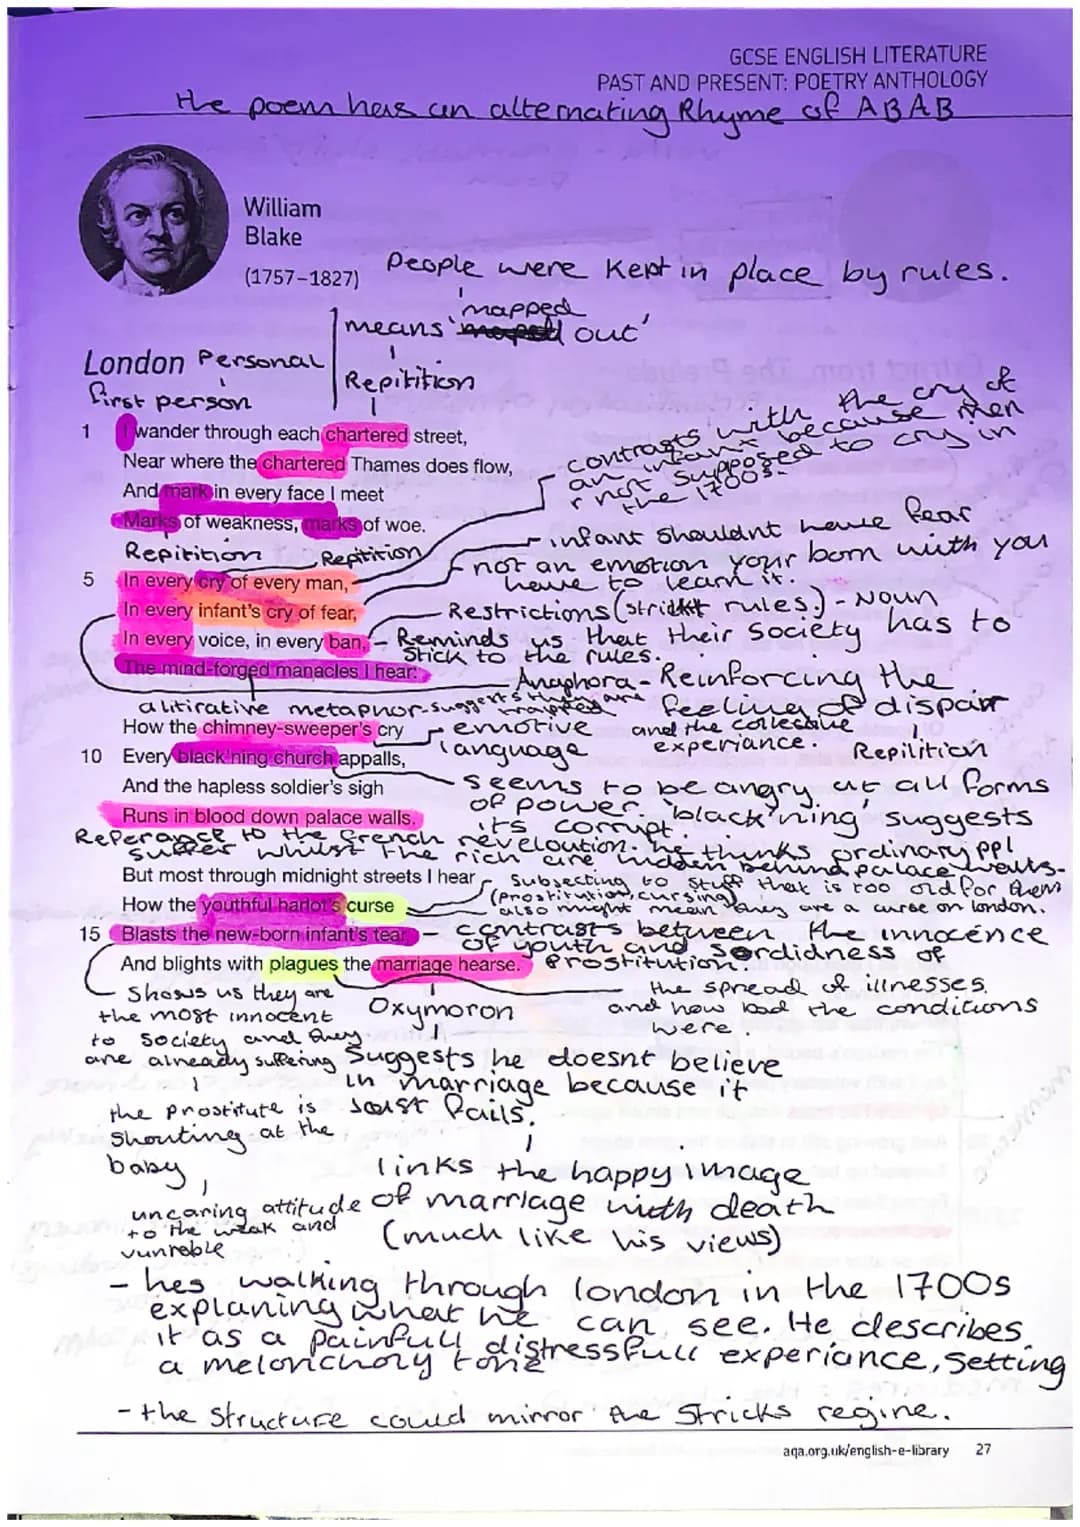 GCSE ENGLISH LITERATURE
PAST AND PRESENT: POETRY ANTHOLOGY
the poem has an alternating Rhyme of ABAB
William
Blake
(1757–1827)
People were kept in place by rules.
mapped
means 'maped out'
London Personal
first person
Repitition
1 I wander through each chartered street,
Near where the chartered Thames does flow,
And mark in every face I meet
Marks of weakness, marks of woe.
contrasts with the cry of
an infant because men
r not supposed to cry in
the 1700s.
Repitition Repitition
infant shouldnt have fear
not an emotion your born with you
have to learn it.
5 In every cry of every man,
In every infant's cry of fear,
In every voice, in every ban,
The mind-forged manacles I hear:
Restrictions (strickt rules.) - Noun
Reminds us that their society has to
stick to the rules.
Anaphora - Reinforcing the
feeling of dispair
and the collective
experiance. Repilition
alitirative metaphor - suggest's they are
trapped
emotive
language
How the chimney-sweeper's cry
10 Every black'ning church appalls,
And the hapless soldier's sigh
Runs in blood down palace walls.
seems to be angry at all forms
of power. 'black'ning' suggests
its corrupt.
Referance to the french reveloution. he thinks ordinary ppl
suffer whilst the rich are hidden behind palace walls.
But most through midnight streets I hear
How the youthful harlot's curse
15 Blasts the new-born infant's tear,
And blights with plagues the marriage hearse.
Subjecting to stuff that is too old for them
(prostitution, cursing)
also might mean they are a curse on london.
contrasts between the innocence
of youth and sordidness of
prostitution.
the spread of illnesses,
and how bad the conditions
were.
Shows us they are
the most innocent
to society and they
are already suffering
Oxymoron
Suggests he doesnt believe
in marriage because it
just fails.
the prostitute is
shouting at the
baby
links the happy image
of marriage with death
(much like his views)
uncaring attitude
to the weak and
vunrable
- hes walking through london in the 1700s
explaning what he can see. He describes
it as a painfull distressfull experiance, setting
a meloncholy tone
- the structure could mirror the stricks regine.
aqa.org.uk/english-e-library 27